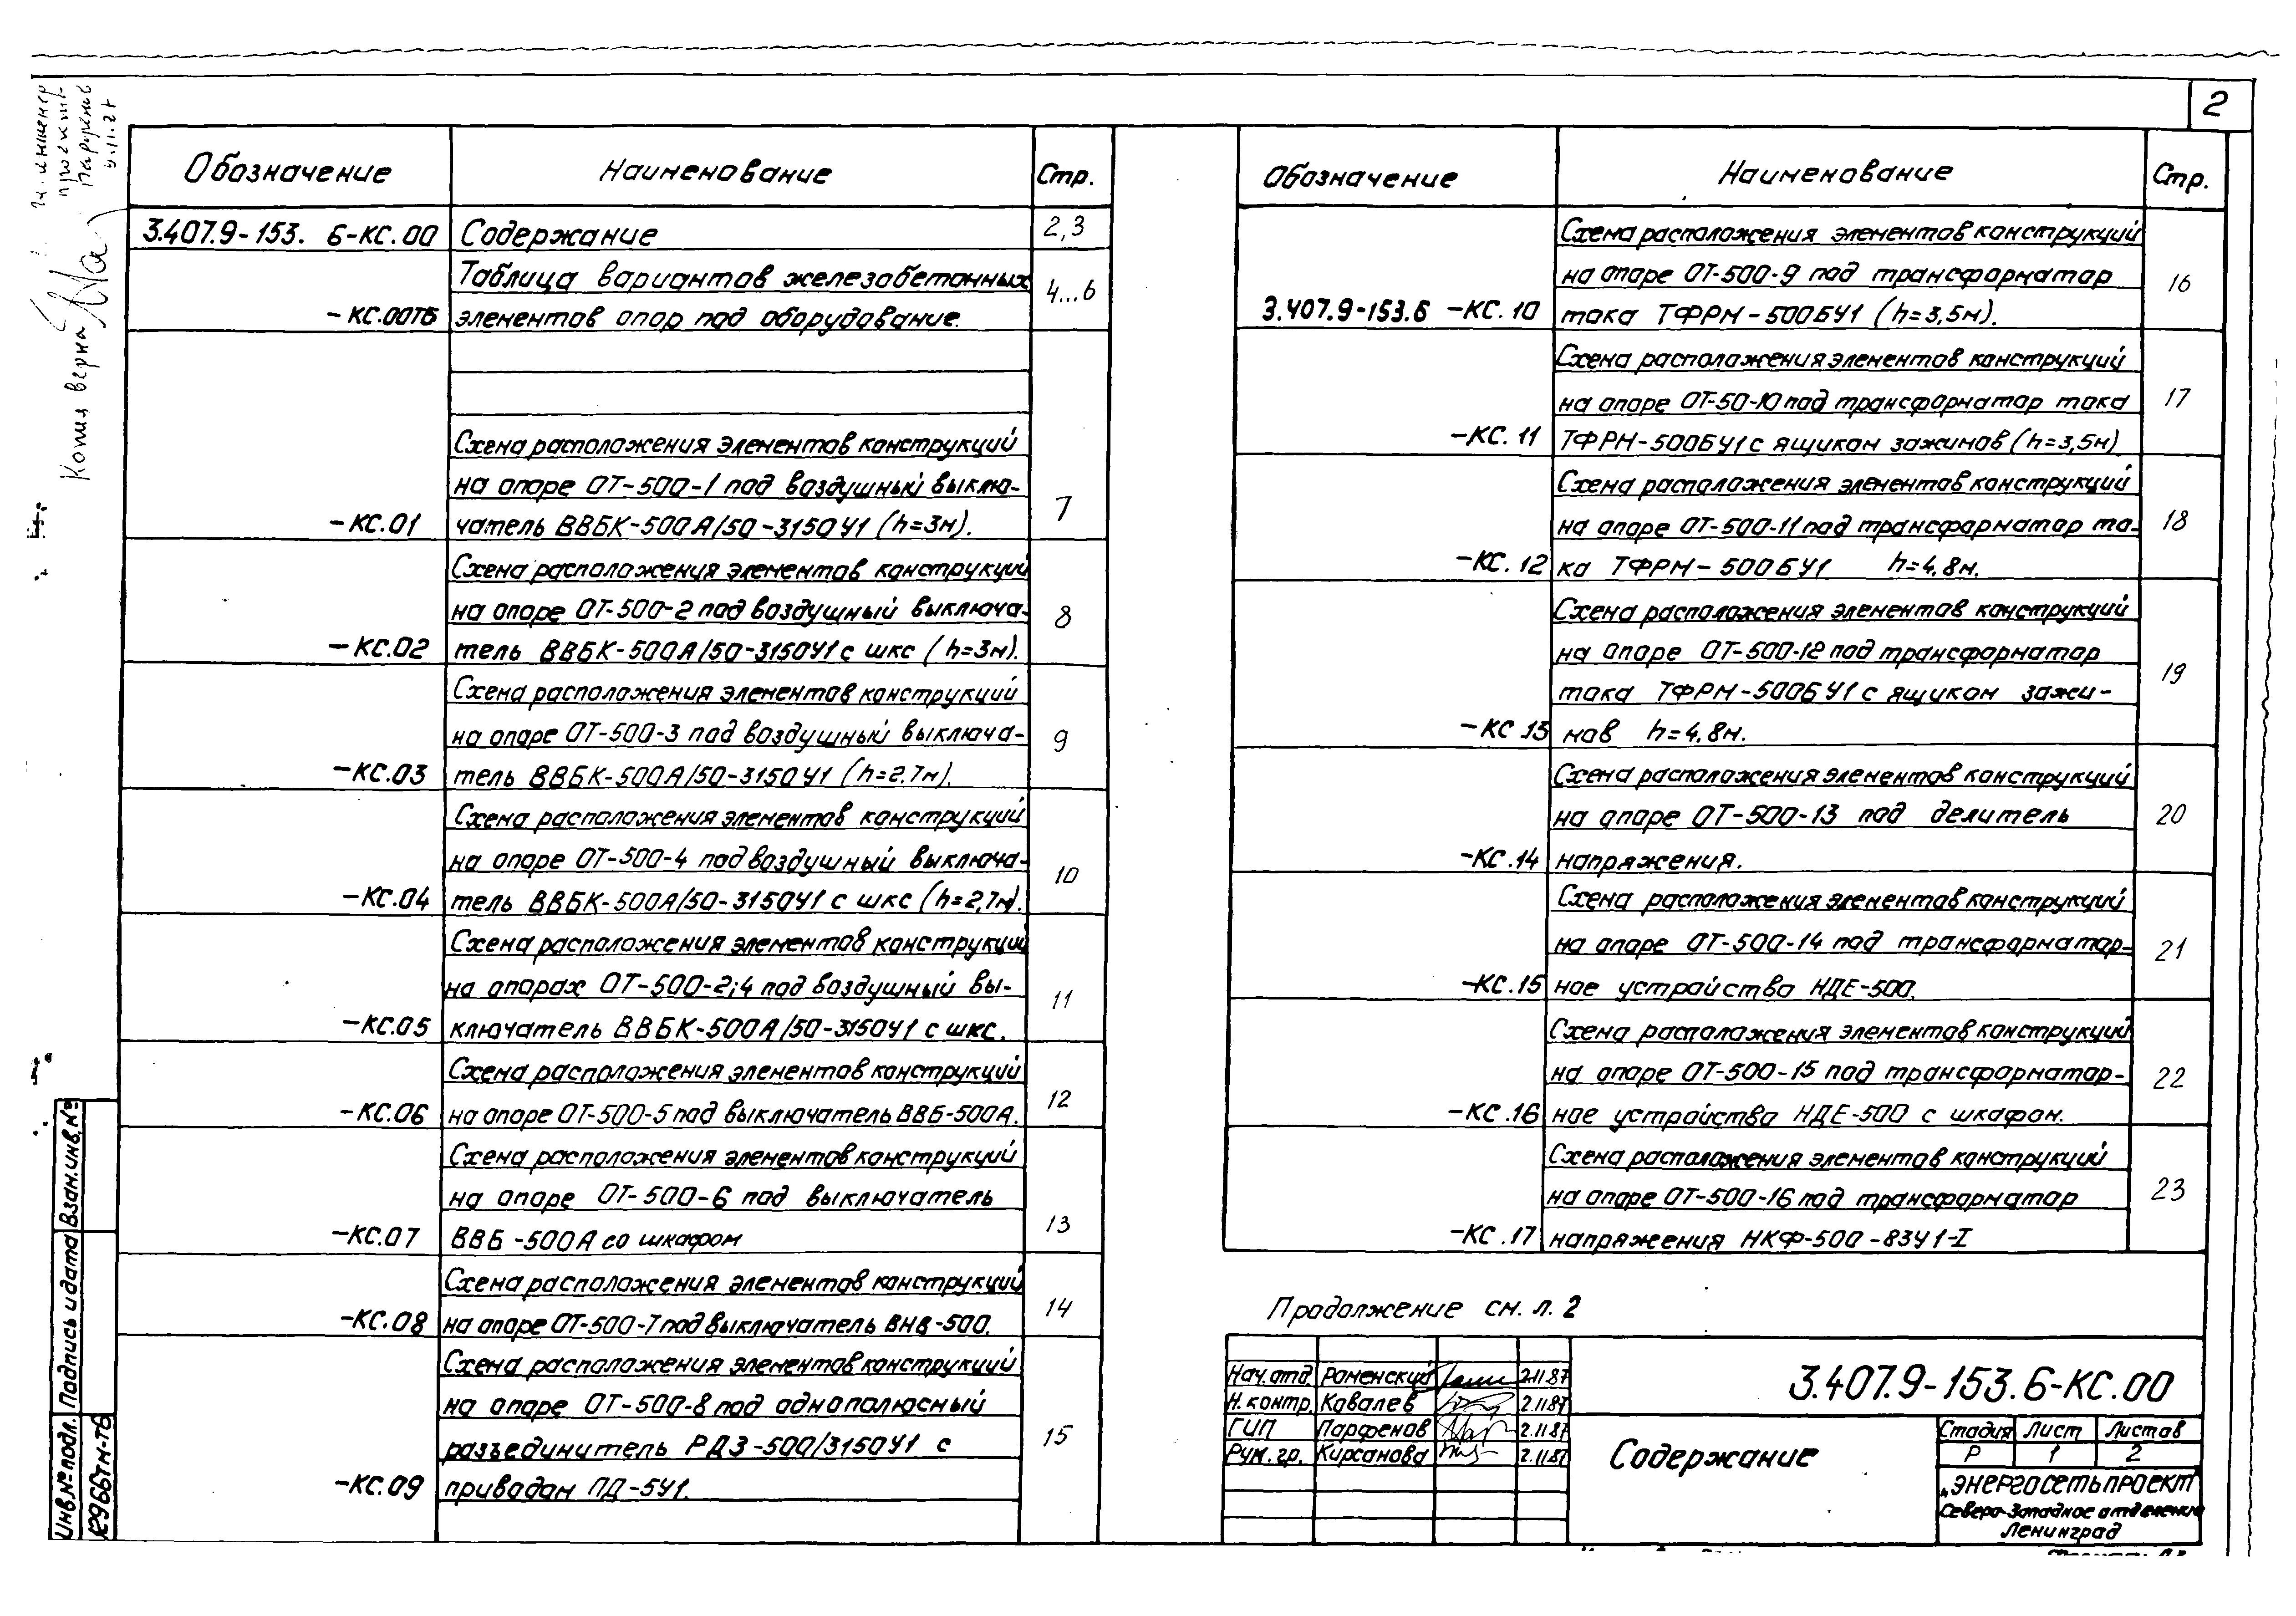 2
Копия верна
Обозначение Наименование Стр.
3.407.9-153. 6-КС.00 Содержание 2,3
Таблица вариантов железобетонных
-КС.00ТБ элементов опор под оборудование. 4...6
Схема расположения элементов конструкций
на опоре ОТ-500-1 под воздушный выклю-
-КС.01 чатель ВВБК-500А/50-3150У1 (h=3м). 7
Схема расположения элементов конструкций
на опоре ОТ-500-2 под воздушный выключа- 8
-КС.02 тель ВВБК-500А/50-3150У1 с шкс (h=3м).
Схема расположения элементов конструкций
на опоре ОТ-500-3 под воздушный выключа- 9
-КС.03 тель ВВБК-500А/50-3150У1 (h=2.7м).
Схема расположения элементов конструкций
на опоре ОТ-500-4 под воздушный выключа- 10
-КС.04 тель ВВБК-500А/50-3150У1 с шкс (h=2,7м).
Схема расположения элементов конструкций
на опорах ОТ-500-2;4 под воздушный вы- 11
-КС.05 ключатель ВВБК-500А/50-3150У1 с шкс.
Схема расположения элементов конструкций 12
-КС.06 на опоре ОТ-500-5 под выключатель ВВБ-500А.
Схема расположения элементов конструкций
на опоре ОТ-500-6 под выключатель 13
-КС.07 ВВБ-500А со шкафом
Схема расположения элементов конструкций 14
-КС.08 на опоре ОТ-500-7 под выключатель ВНВ-500.
Схема расположения элементов конструкций
на опоре ОТ-500-8 под однополюсный
разъединитель РДЗ-500/3150У1 с 15
-КС.09 приводам ПД-5У1.
Обозначение Наименование Стр.
Схема расположения элементов конструкций
на опоре ОТ-500-9 под трансформатор 16
3.407.9-153.6 -КС.10 тока ТФРМ-500БУ1 (h=3,5м).
Схема расположения элементов конструкций
на опоре ОТ-50-10 под трансформатор тока 17
-КС.11 ТФРМ-500БУ1 с ящиком зажимов (h=3,5м)
Схема расположения элементов конструкций
на опоре ОТ-500-11 под трансформатор то- 18
-КС.12 ка ТФРМ-500БУ1 h=4,8м.
Схема расположения элементов конструкций
на опоре ОТ-500-12 под трансформатор
тока ТФРМ-500БУ1 с ящиком зажи- 19
-КС.13 мов h=4,8м.
Схема расположения элементов конструкций
на опоре ОТ-500-13 под делитель 20
-КС.14 напряжения.
Схема расположения элементов конструкций
на опоре ОТ-500-14 под трансформатор- 21
-КС.15 ное устройство НДЕ-500.
Схема расположения элементов конструкций
на опоре ОТ-500-15 под трансформатор- 22
-КС.16 ное устройство НДЕ-500 с шкафом.
Схема расположения элементов конструкций
на опоре ОТ-500-16 под трансформатор 23
-КС.17 напряжения НКФ-500-83У1-I
Продолжение см. л. 2
Нач.отд. Роменский 2.11.87
Н.контр. Ковалев 2.11.87
ГИП Парфенов 2.11.87
Рук.гр. Кирсанова 2.11.87
3.407.9-153.6-КС.00
Содержание
Стадия Лист Листов
Р 1 2
„ЭНЕРГОСЕТЬПРОЕКТ"
Северо-Западное отделение
Ленинград
Взам.инв.№
Подпись и дата
Инв.№подл.